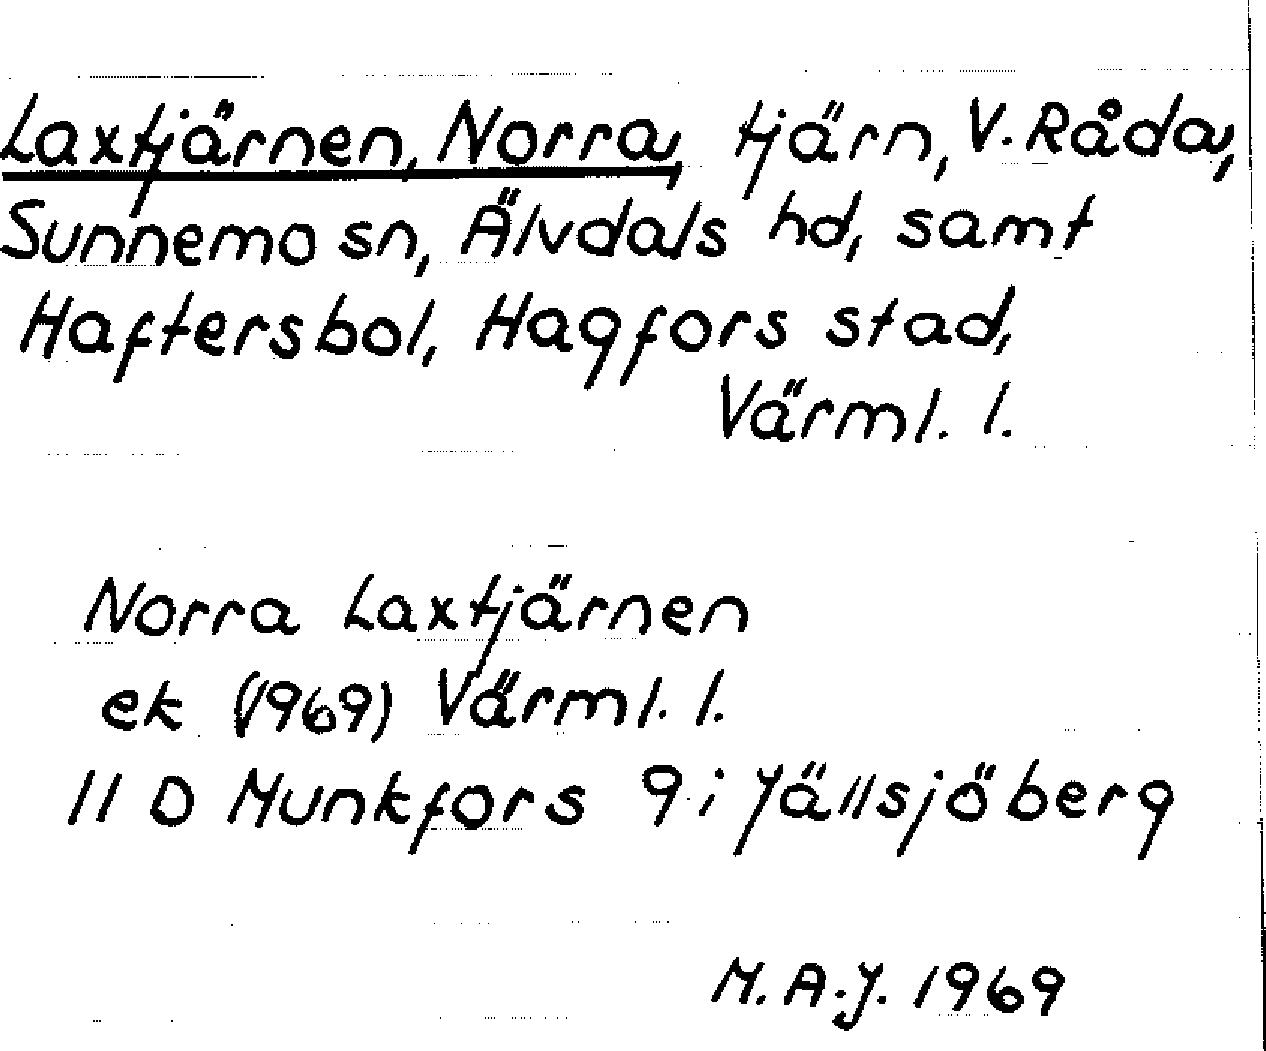 Laxtjärnen, Norra, tjärn, V. Råda,
Sunnemo sn, Älvdals hd, samt
Haftersbol, Hagfors stad,
Värml. l.
Norra Laxtjärnen
ek (1969) Värml. l.
11 D Munkfors 9 i Jällsjöberg
M. A. J. 1969